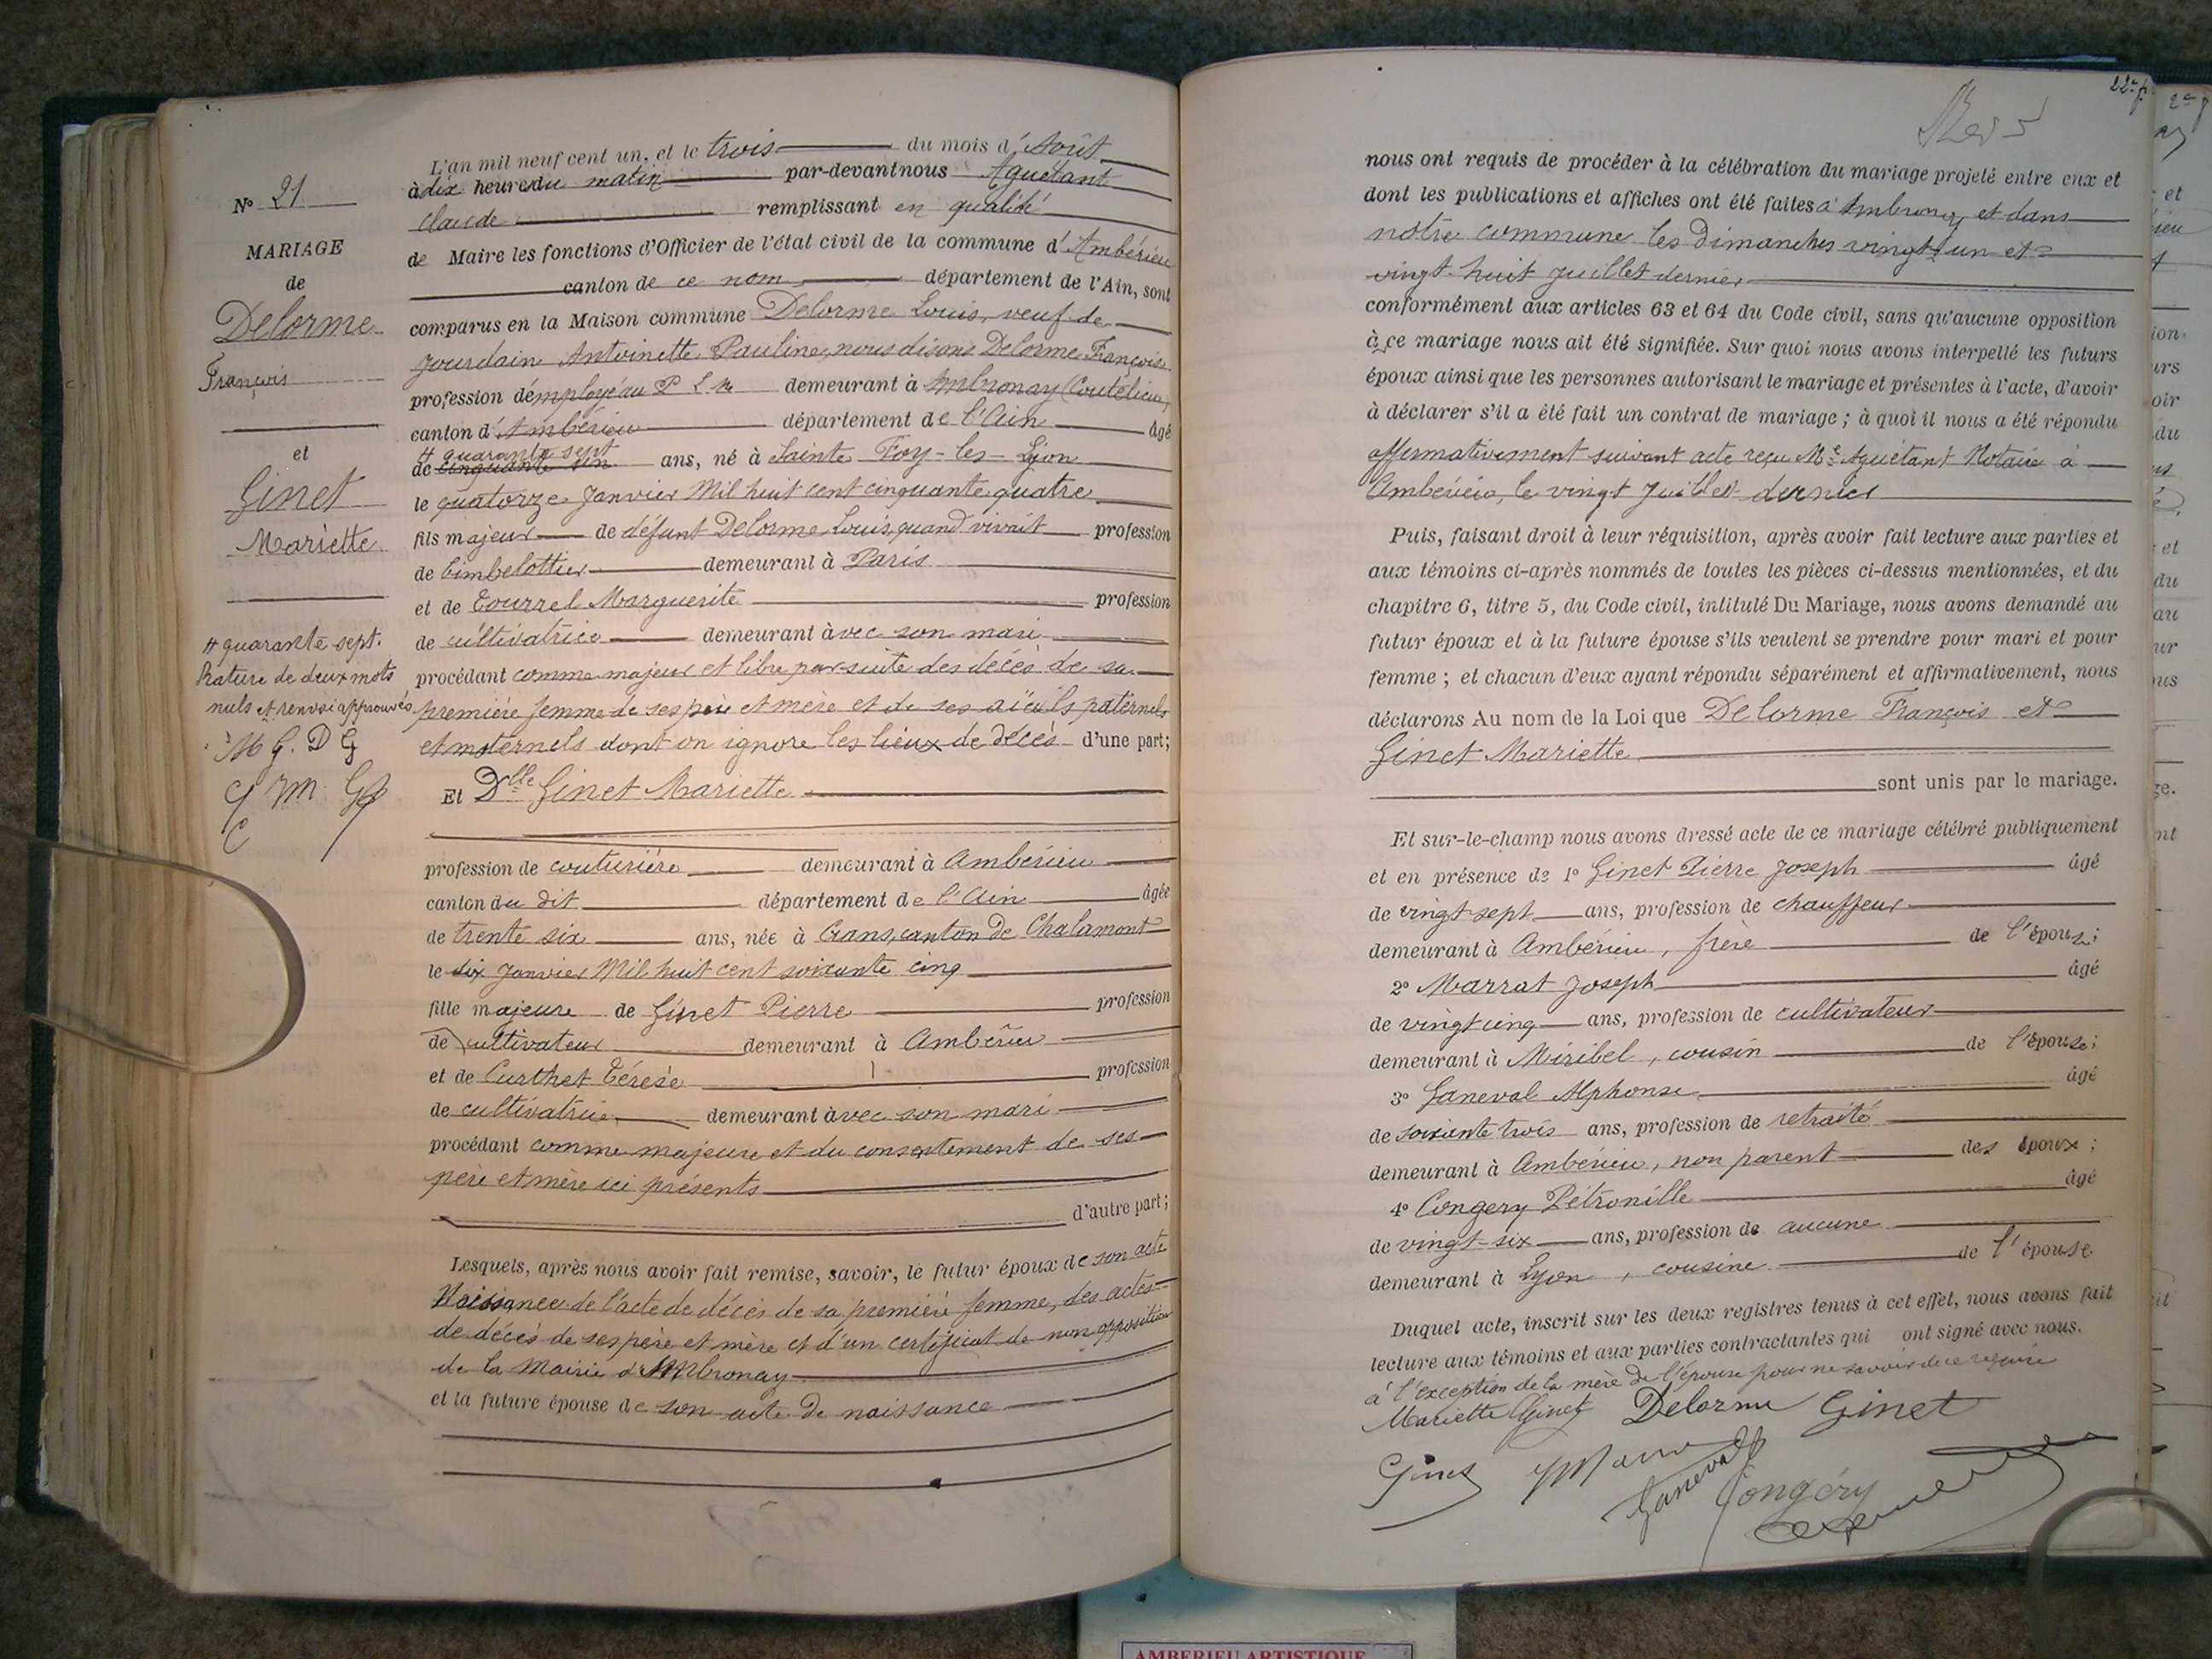 N° 21
MARIAGE
de
Delorme
François
et
Ginet
Mariette
# quarante sept.
Rature de deux mots
nuls et renvoi approuvés
M G. D G
L'an mil neuf cent un, et le trois du mois d'Août
à dix heures du matin par-devant nous Aguétant
Claude remplissant en qualité
de Maire les fonctions d'Officier de l'état civil de la commune d'Ambérieu
canton de ce nom département de l'Ain, sont
comparus en la Maison commune Delorme Louis, veuf de
Jourdain Antoinette Pauline, nous disons Delorme François
profession d'employé au P L M demeurant à Ambronay (Coutelieu)
canton d'Ambérieu département de l'Ain âgé
# quarante sept
de cinquante un ans, né à Sainte Foy-les-Lyon
le quatorze Janvier Mil huit cent cinquante quatre
fils majeur de défunt Delorme Louis, quand vivait profession
de bimbelottier demeurant à Paris
et de Tourrel Marguerite profession
de cultivatrice demeurant avec son mari
procédant comme majeur et libre par suite des décès de sa
première femme de ses père et mère et de ses aïeuls paternels
et maternels dont on ignore les lieux de décès d'une part;
Et Dlle Ginet Mariette
profession de couturière demeurant à Ambérieu
canton du dit département de l'Ain âgée
de trente six ans, née à Crans, canton de Chalamont
le dix Janvier Mil huit cent soixante cinq
fille majeure de Ginet Pierre profession
de cultivateur demeurant à Ambérieu
et de Curthet Térèse profession
de cultivatrice demeurant avec son mari
procédant comme majeure et du consentement de ses
père et mère ici présents
d'autre part;
Lesquels, après nous avoir fait remise, savoir, le futur époux de son acte
Naissance de l'acte de décès de sa première femme, des actes
de décès de ses père et mère et d'un certificat de non opposition
de la Mairie d'Ambronay
et la future épouse de son acte de naissance
22e f.
nous ont requis de procéder à la célébration du mariage projeté entre eux et
dont les publications et affiches ont été faites à Ambronay et dans
notre commune les Dimanches vingt un et
vingt-huit juillet dernier
conformément aux articles 63 et 64 du Code civil, sans qu'aucune opposition
à ce mariage nous ait été signifiée. Sur quoi nous avons interpellé les futurs
époux ainsi que les personnes autorisant le mariage et présentes à l'acte, d'avoir
à déclarer s'il a été fait un contrat de mariage; à quoi il nous a été répondu
affirmativement suivant acte reçu Me Aguétant Notaire à
Ambérieu, le vingt Juillet dernier
Puis, faisant droit à leur réquisition, après avoir fait lecture aux parties et
aux témoins ci-après nommés de toutes les pièces ci-dessus mentionnées, et du
chapitre 6, titre 5, du Code civil, intitulé Du Mariage, nous avons demandé au
futur époux et à la future épouse s'ils veulent se prendre pour mari et pour
femme; et chacun d'eux ayant répondu séparément et affirmativement, nous
déclarons Au nom de la Loi que Delorme François et
Ginet Mariette
sont unis par le mariage.
Et sur-le-champ nous avons dressé acte de ce mariage célébré publiquement
et en présence de 1° Ginet Pierre Joseph âgé
de vingt-sept ans, profession de chauffeur
demeurant à Ambérieu, frère de l'épouse;
2° Marrat Joseph âgé
de vingt cinq ans, profession de cultivateur
demeurant à Miribel, cousin de l'épouse;
3° Ganeval Alphonse âgé
de soixante trois ans, profession de retraité
demeurant à Ambérieu, non parent des époux;
4° Congery Pétronille âgé
de vingt-six ans, profession de aucune
demeurant à Lyon, cousine de l'épouse
Duquel acte, inscrit sur les deux registres tenus à cet effet, nous avons fait
lecture aux témoins et aux parties contractantes qui ont signé avec nous.
à l'exception de la mère de l'épouse pour ne savoir de ce requise
Mariette Ginet Delorme Ginet
Ginet
Ganeval Congéry
AMBERIEU ARTISTIQUE